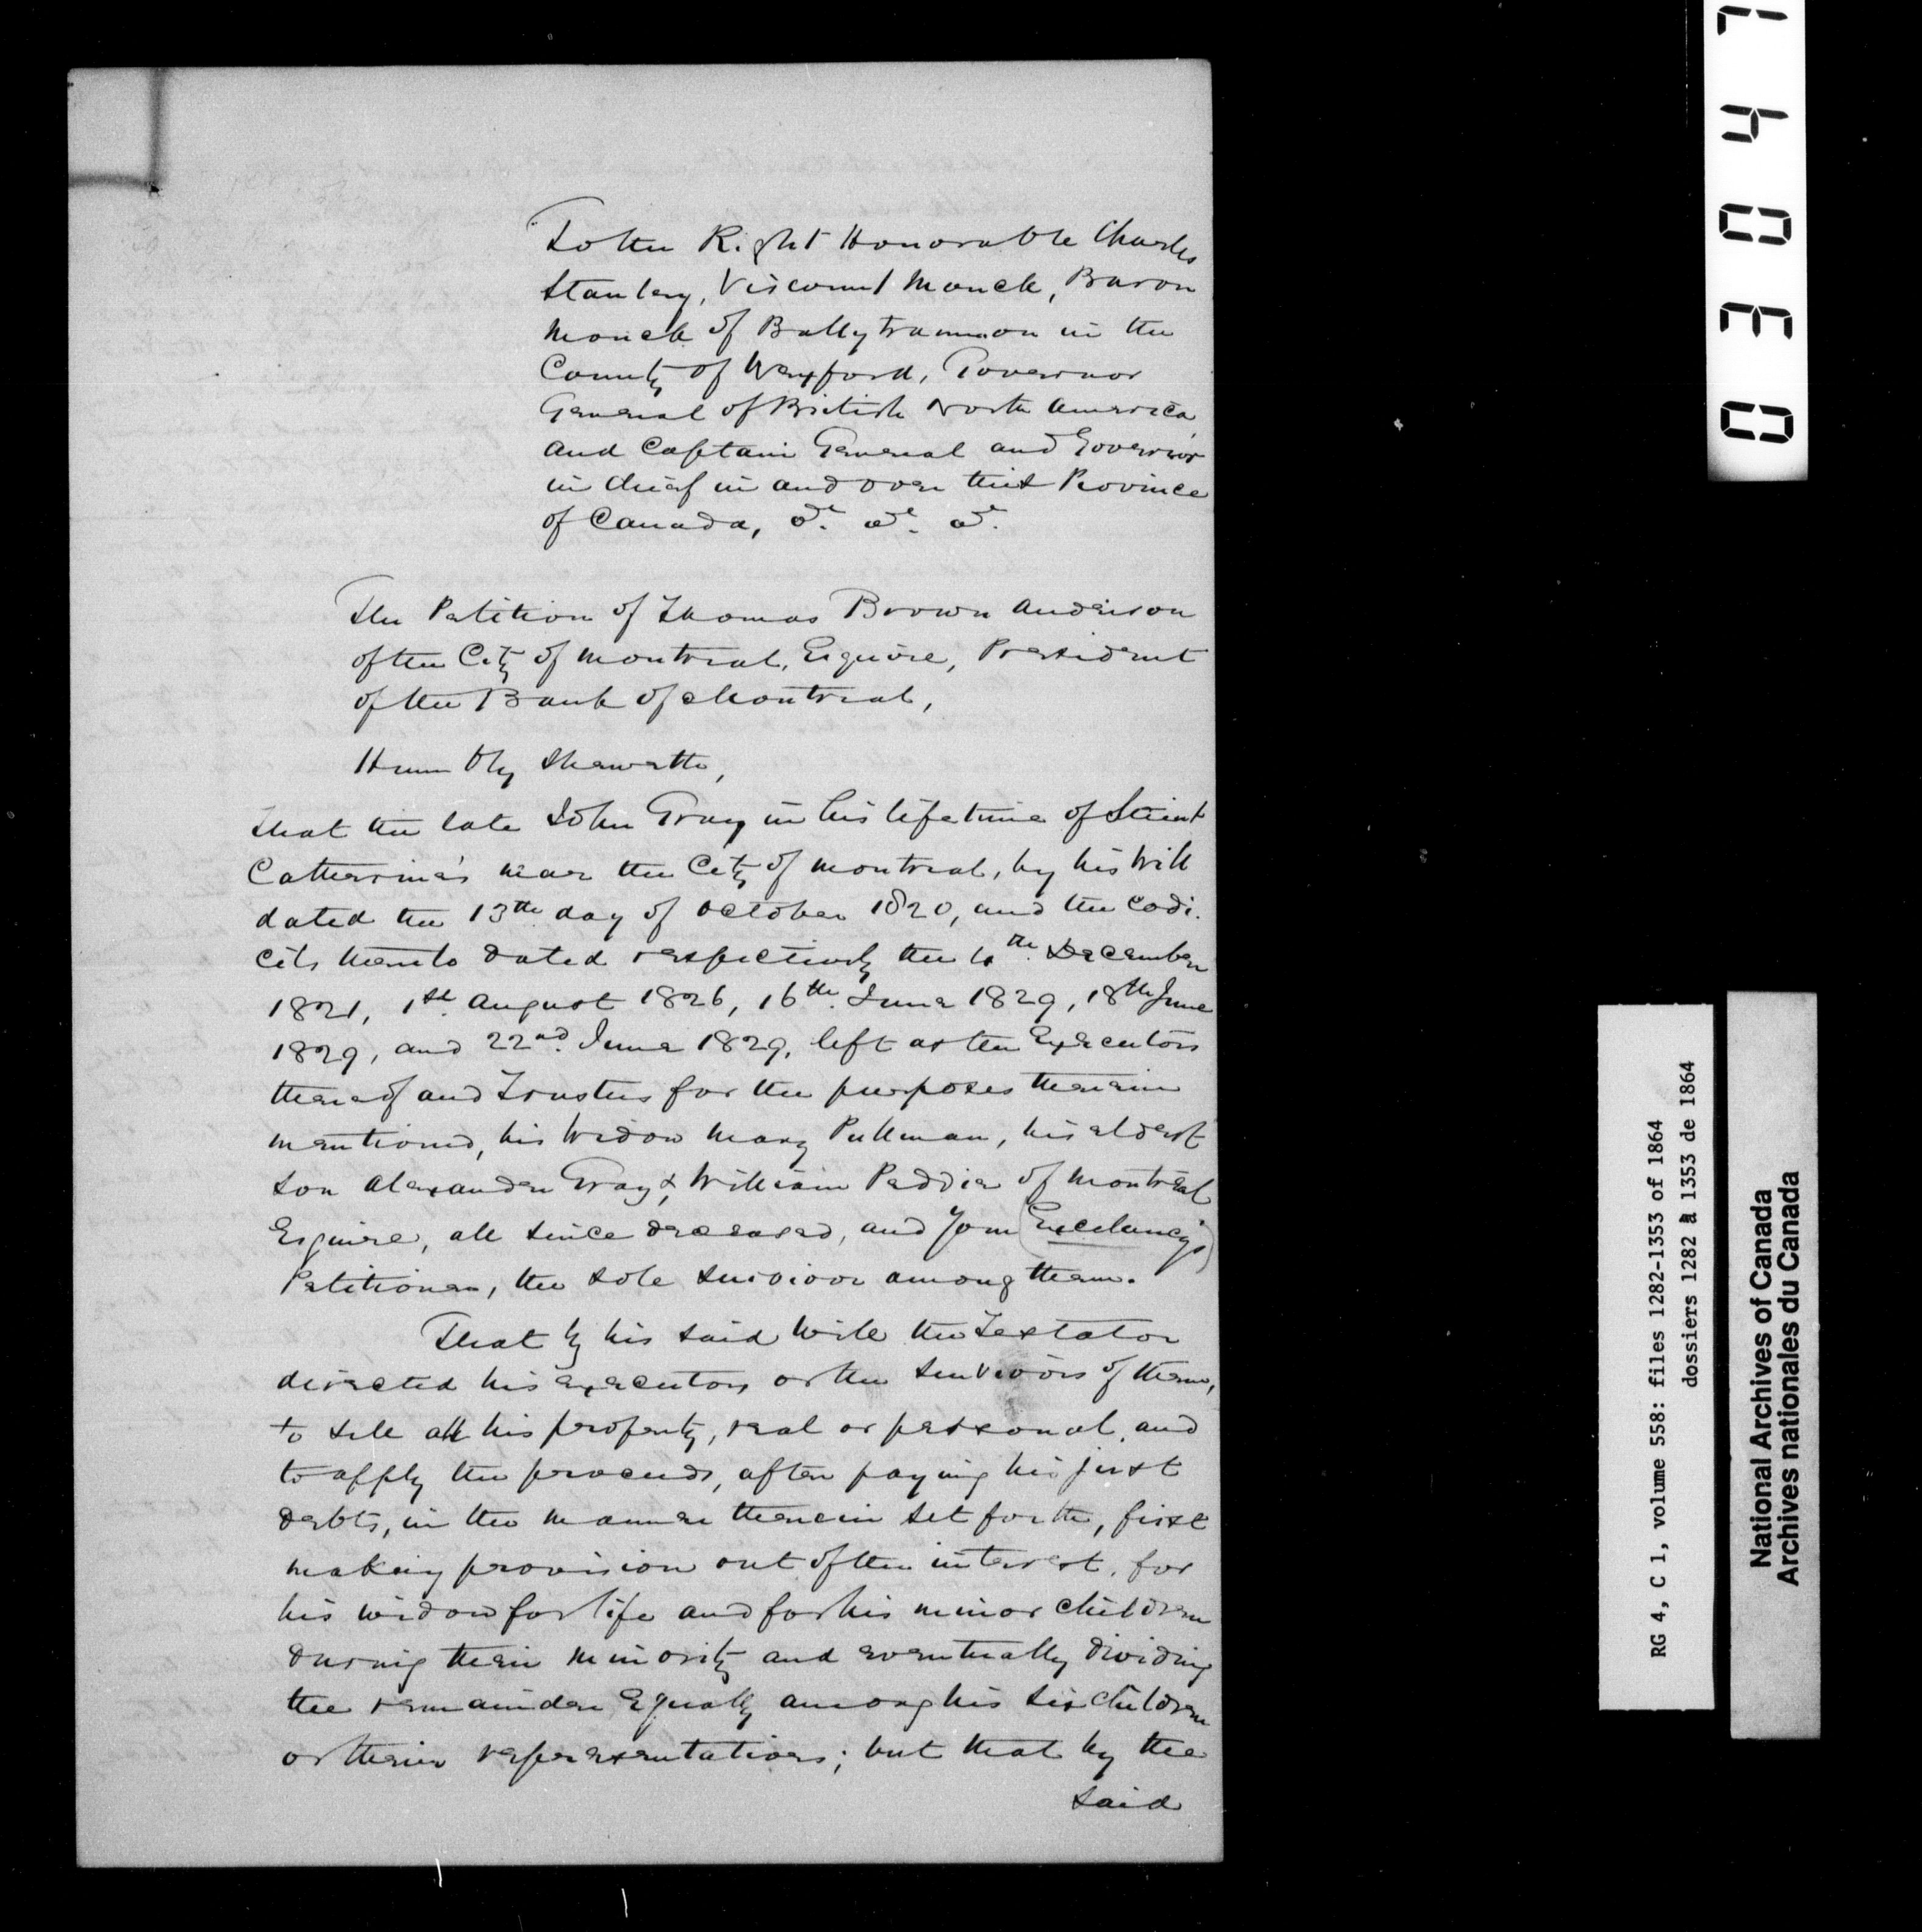 To the Right Honorable Charles
Stanley, Viscount Monck, Baron
Monck of Ballytrammon in the
County of Wexford, Governor
General of British North America,
and Captain General and Governor
in Chief in and over this Province
of Canada, &c. &c. &c.
The Petition of Thomas Brown Anderson
of the City of Montreal, Esquire, President
of the Bank of Montreal,
Humbly Sheweth,
That the late John Gray in his lifetime of Saint
Catherine's near the City of Montreal, by his Will
dated the 13th day of October 1820, and the Codi-
cils thereto dated respectively the December
1821, 1st August 1826, 16th June 1829, 18th June
1829, and 22nd June 1829, left as the Executors
thereof and Trustees for the purposes therein
mentioned, his Widow Mary Pullman, his eldest
son Alexander Gray & William Peddie of Montreal
Esquire, all since deceased, and your (Excellency's)
Petitioner, the sole survivor among them.
That by his said Will the Testator
directed his executors or the survivors of them,
to sell all his property, real or personal, and
to apply the proceeds, after paying his just
debts, in the manner therein set forth, first
making provision out of the interest, for
his widow for life and for his minor children
during their minority and eventually dividing
the remainder equally among his six children
or their representatives; but that by the
said
0304
RG 4, C 1, volume 558: files 1282-1353 of 1864
dossiers 1282 à 1353 de 1864
National Archives of Canada
Archives nationales du Canada